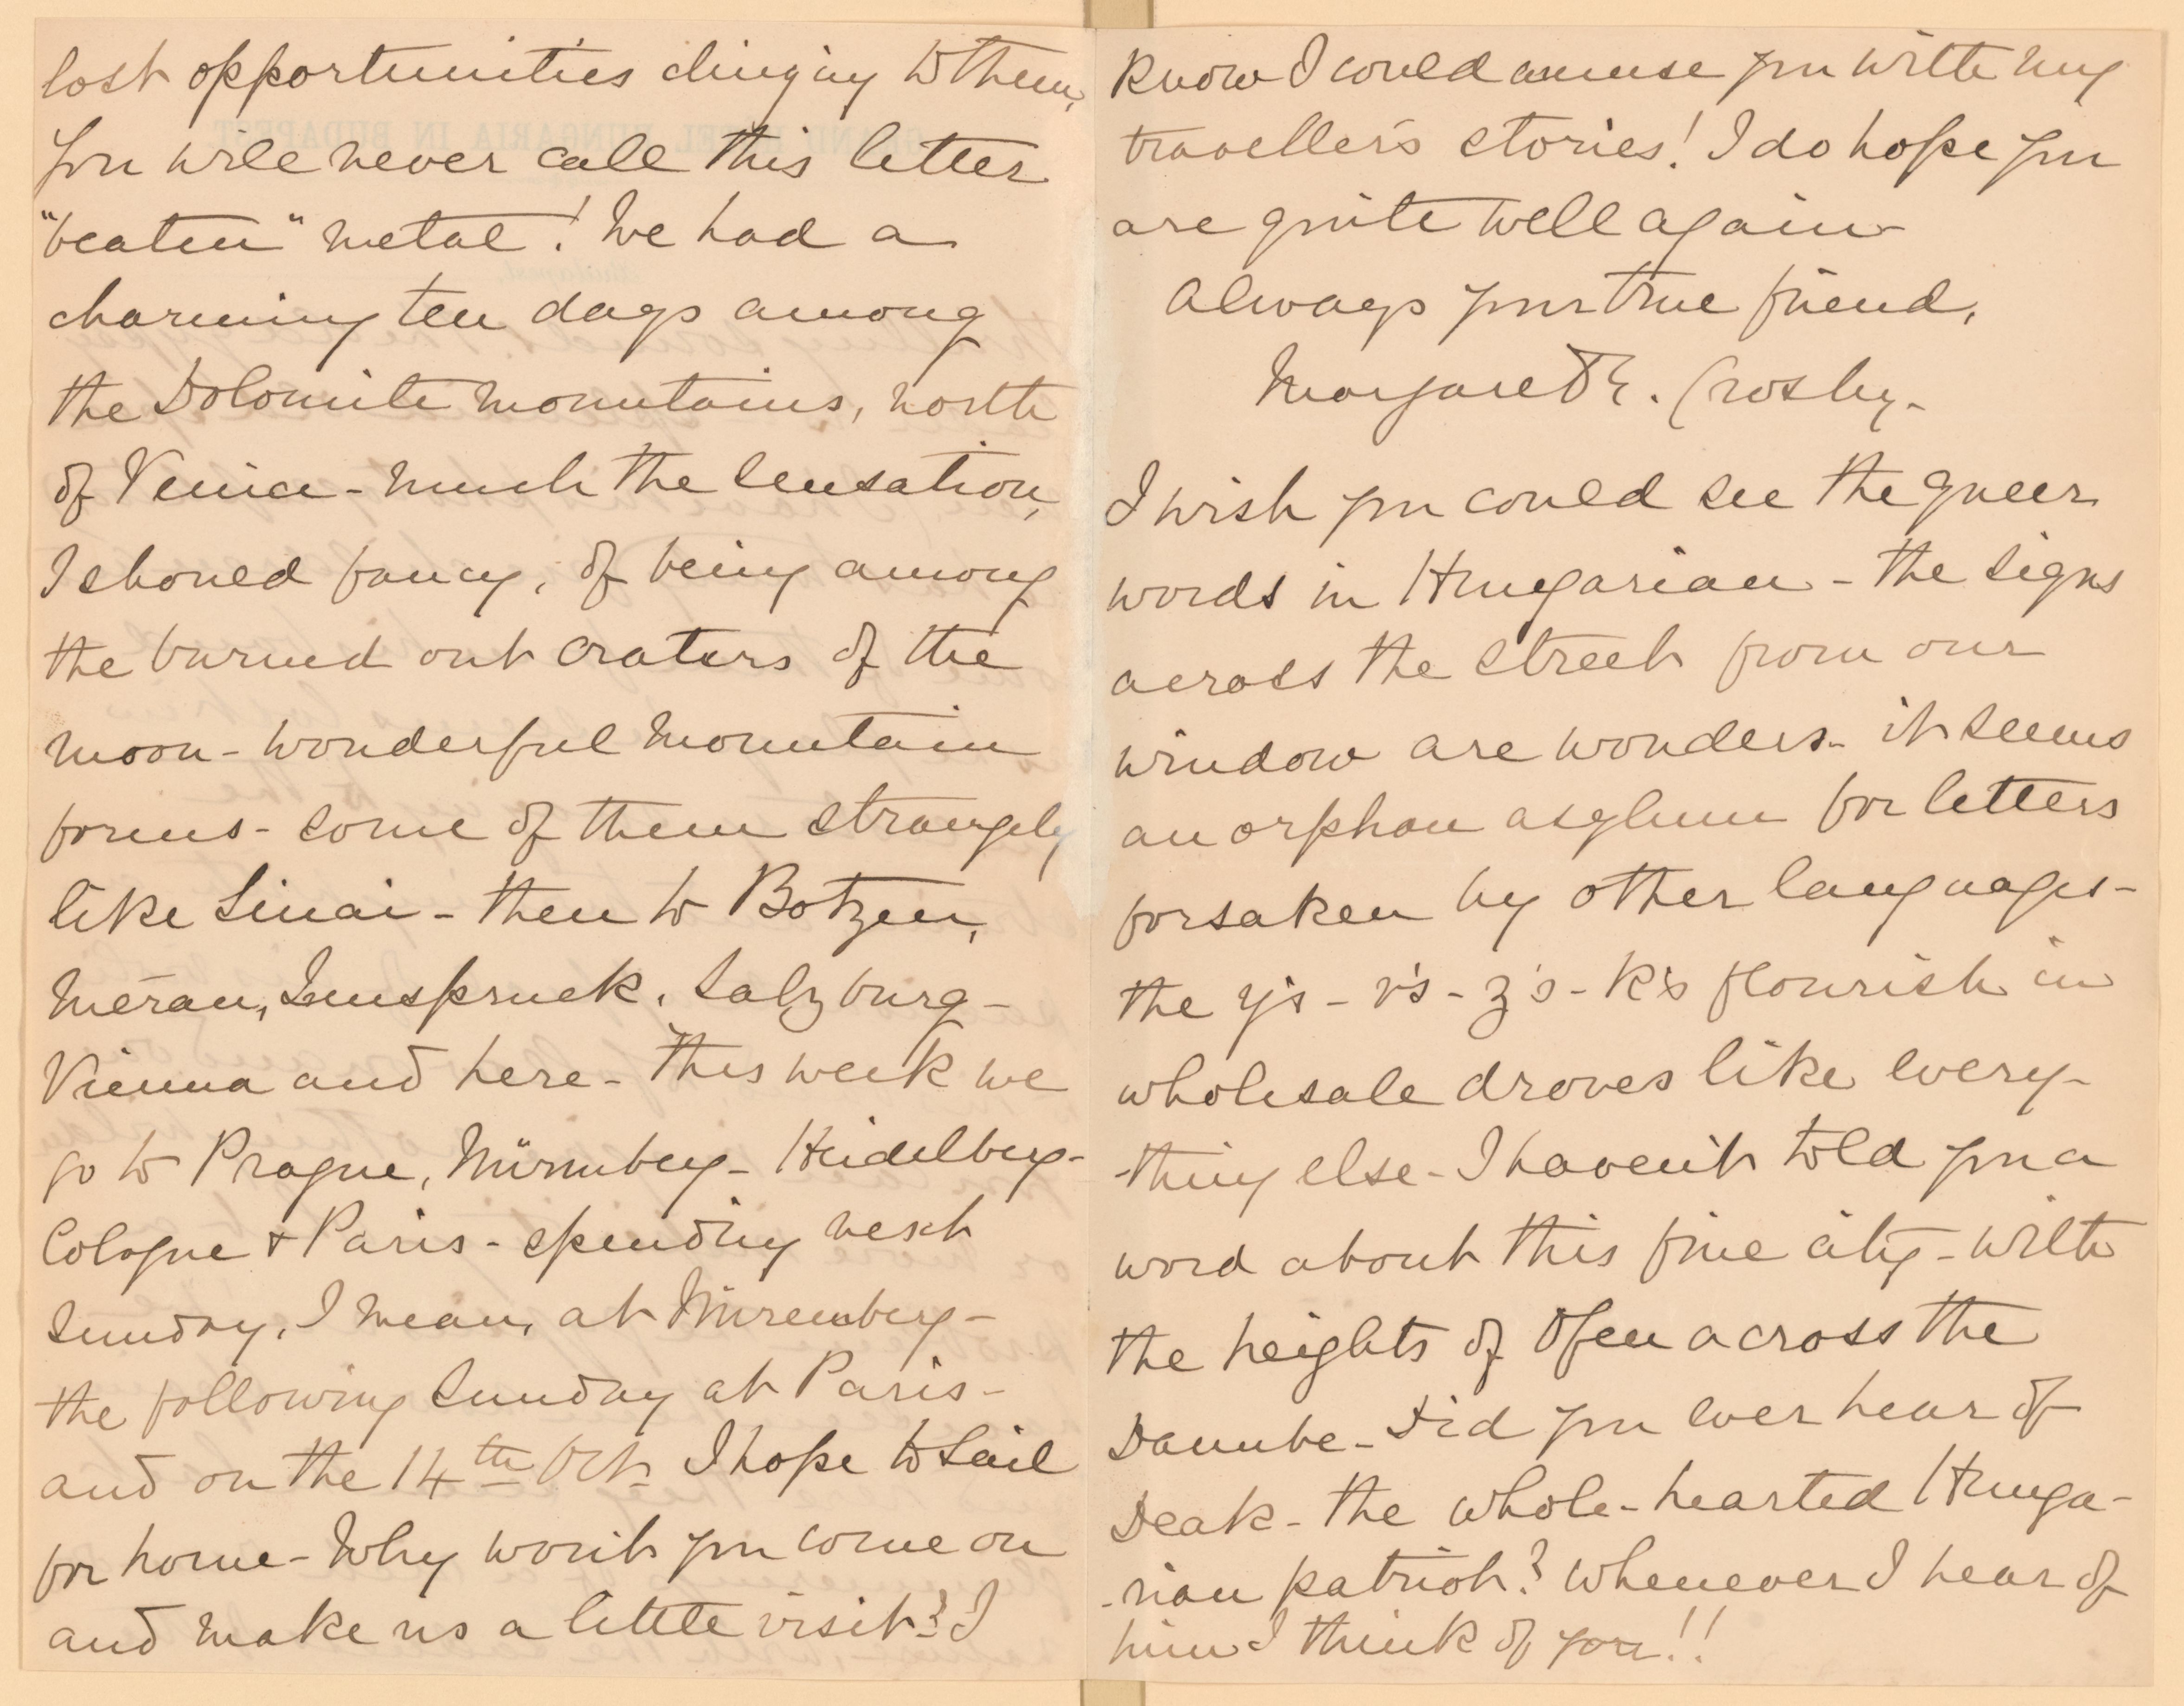 lost opportunities clinging to them,
you will never call this letter
"beaten" metal! We had a
charming ten days among
the Dolomite mountains, north
of Venice - much the sensation,
I should fancy, of being among
the burned out craters of the
moon - wonderful mountain
forms - some of them strangely
like Sinai - then to Botzen,
Meran, Innspruck, Salzburg -
Vienna and here - This week we
go to Prague, Nürnberg - Heidelberg -
Cologne & Paris - spending next
Sunday, I mean, at Nüremberg -
the following Sunday at Paris -
and on the 14th Oct. I hope to sail
for home - Why won't you come on
and make us a little visit? I
know I could amuse you with my
traveller's stories! I do hope you
are quite well again -
Always your true friend,
Margaret E. Crosby.
I wish you could see the queer
words in Hungarian - the signs
across the street from our
window are wonders - it seems
an orphan asylum for letters
forsaken by other languages -
the y's - v's - z's - k's flourish in
wholesale droves like every-
-thing else - I haven't told you a
word about this fine city - with
the heights of Ofen across the
Danube - Did you ever hear of
Deak - the whole-hearted Hunga-
-rian patriot? Whenever I hear of
him I think of you!!
GRAND HOTEL HUNGARIA IN BUDAPEST
Budapest,